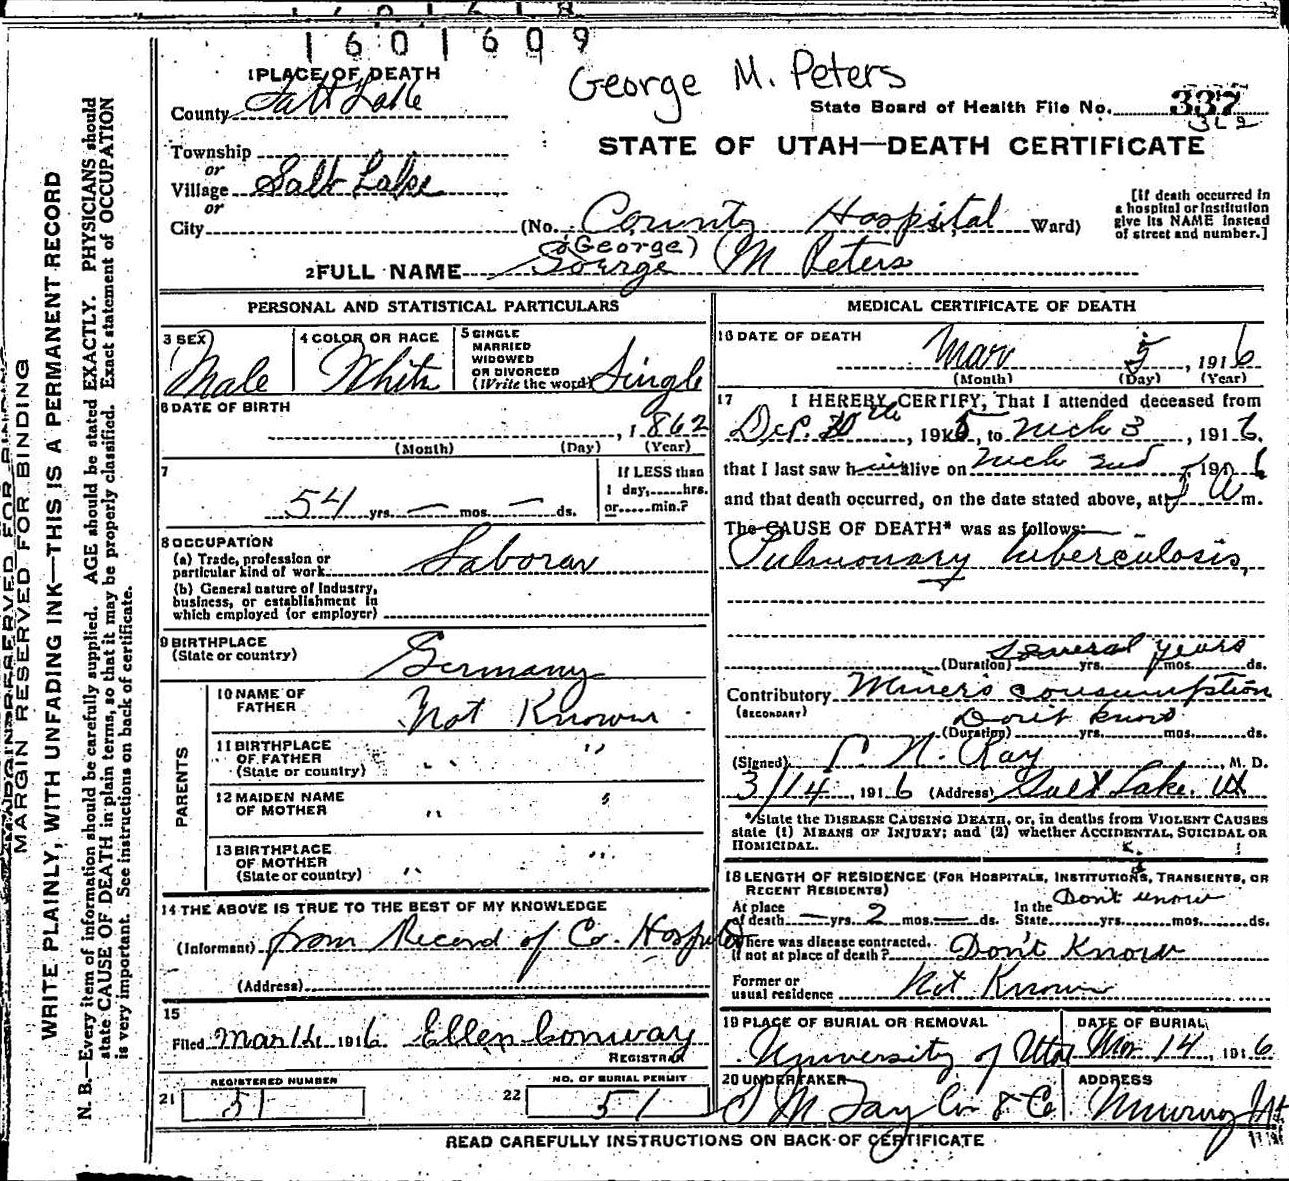 1601609
George M. Peters
1 PLACE OF DEATH
County Salt Lake
State Board of Health File No. 337
Township
or
Village Salt Lake
or
City
STATE OF UTAH—DEATH CERTIFICATE
(No. County Hospital Ward)
[If death occurred in
a hospital or institution
give its NAME instead
of street and number.]
(George)
2 FULL NAME George M Peters
PERSONAL AND STATISTICAL PARTICULARS
3 SEX
Male
4 COLOR OR RACE
White
5 SINGLE
MARRIED
WIDOWED
OR DIVORCED
(Write the word) Single
6 DATE OF BIRTH
, 1862
(Month) (Day) (Year)
7
54 yrs. — mos. — ds.
If LESS than
1 day,......hrs.
or......min.?
8 OCCUPATION
(a) Trade, profession or
particular kind of work Laborer
(b) General nature of Industry,
business, or establishment in
which employed (or employer)
9 BIRTHPLACE
(State or country)
Germany
PARENTS
10 NAME OF
FATHER
Not Known
11 BIRTHPLACE
OF FATHER
(State or country) " "
12 MAIDEN NAME
OF MOTHER "
13 BIRTHPLACE
OF MOTHER
(State or country) " "
14 THE ABOVE IS TRUE TO THE BEST OF MY KNOWLEDGE
(Informant) from Record of Co Hospital
(Address)
15
Filed Mar 14, 1916 Ellen Conway
REGISTRAR
REGISTERED NUMBER
21 51
NO. OF BURIAL PERMIT
22 51
MEDICAL CERTIFICATE OF DEATH
16 DATE OF DEATH
Mar 5, 1916
(Month) (Day) (Year)
17 I HEREBY CERTIFY, That I attended deceased from
30th, 1915, to Mch 3, 1916,
that I last saw him alive on Mch 2nd, 1916
and that death occurred, on the date stated above, at m.
The CAUSE OF DEATH* was as follows:
Pulmonary tuberculosis,
several years
(Duration) yrs. mos. ds.
Contributory Miner's consumption
(SECONDARY)
Don't know
(Duration) yrs. mos. ds.
(Signed) N. Ray, M. D.
3/14, 1916 (Address) Salt Lake, Ut
*State the DISEASE CAUSING DEATH, or, in deaths from VIOLENT CAUSES
state (1) MEANS OF INJURY; and (2) whether ACCIDENTAL, SUICIDAL OR
HOMICIDAL.
18 LENGTH OF RESIDENCE (FOR HOSPITALS, INSTITUTIONS, TRANSIENTS, OR
RECENT RESIDENTS)
At place
of death — yrs. 2 mos. — ds.
In the
State Don't know yrs. mos. ds.
Where was disease contracted,
if not at place of death? Don't Know
Former or
usual residence Not Known
19 PLACE OF BURIAL OR REMOVAL
University of Utah
DATE OF BURIAL
Mar 14, 1916
20 UNDERTAKER
ADDRESS
Murray Ut
READ CAREFULLY INSTRUCTIONS ON BACK OF CERTIFICATE
MARGIN RESERVED FOR BINDING
WRITE PLAINLY, WITH UNFADING INK—THIS IS A PERMANENT RECORD
N. B.—Every item of information should be carefully supplied. AGE should be stated EXACTLY. PHYSICIANS should
state CAUSE OF DEATH in plain terms, so that it may be properly classified. Exact statement of OCCUPATION
is very important. See instructions on back of certificate.